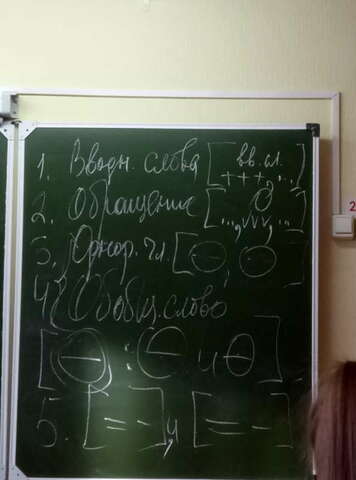 1. Вводн. слова [ вв. сл. +++, ... ]
2. Обращение [ ..., О, ... ]
3. Однор. чл. [ О, О ]
4. Обобщ. слово
[ О : О и О ]
5. [ = - ], и [ = - ]
2